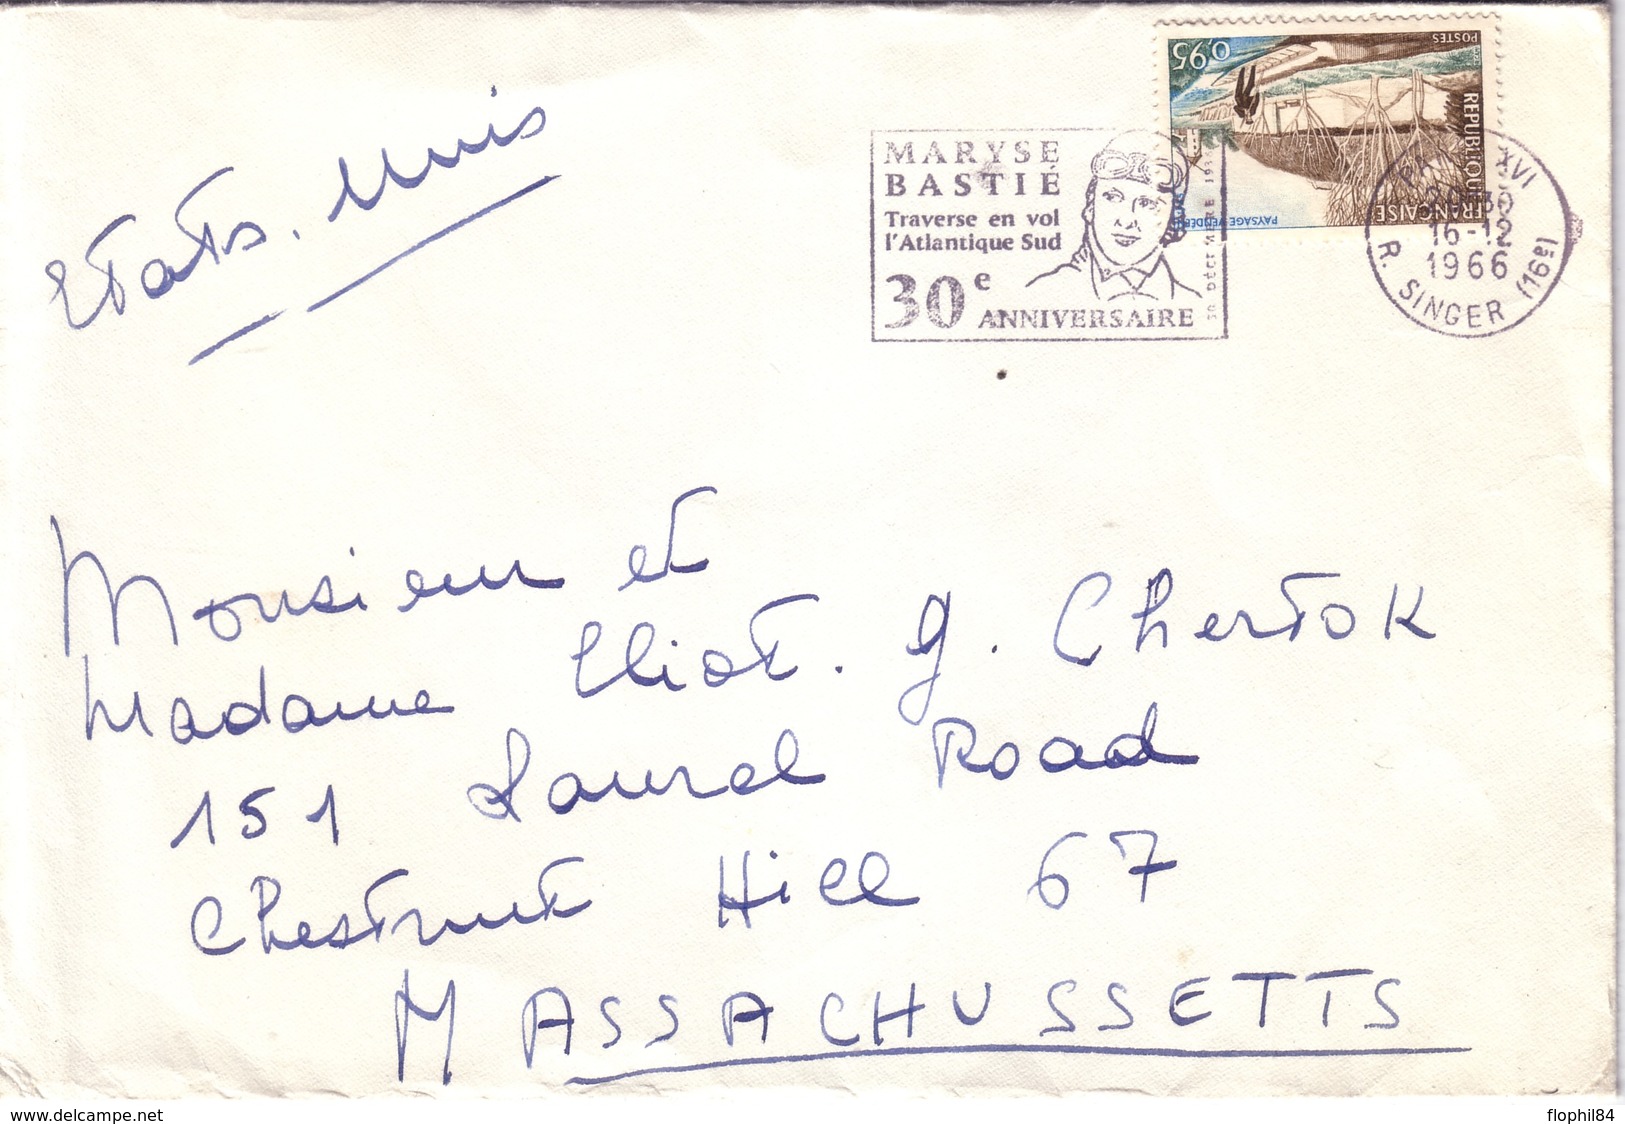 Etats. Unis
MARYSE
BASTIÉ
Traverse en vol
l'Atlantique Sud
30e ANNIVERSAIRE
0,95
POSTES
REPUBLIQUE
FRANÇAISE
PAYSAGE VENDÉEN
XVI
16-12
1966
R. SINGER (16e)
Monsieur et
Madame Eliot. G. Chertok
151 Laurel Road
Chestnut Hill 67
MASSACHUSSETTS
www.delcampe.net
flophil84